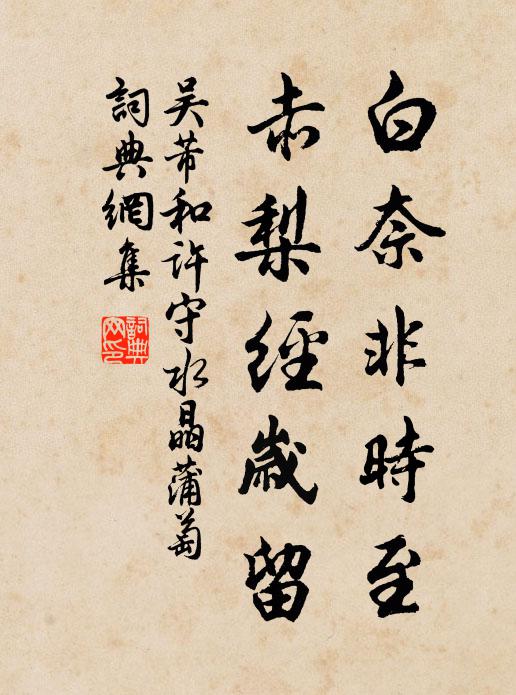 白奈非時至
赤梨經歲留
吴芾和許守水晶蒲萄
詞典網集
詞典網印